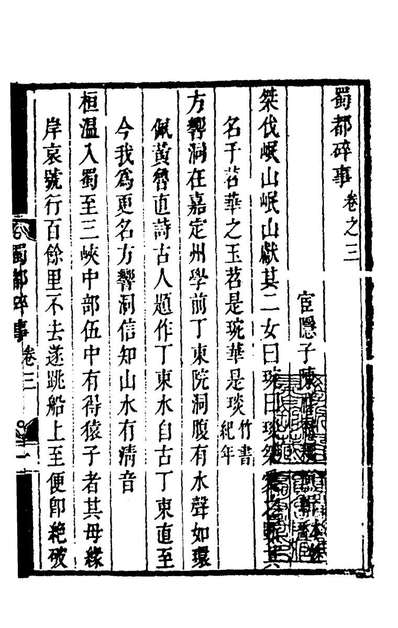 蜀都碎事 卷之三
宦隱子陳
桀伐岷山岷山獻其二女曰琬曰琰桀愛名其
名于苕華之玉苕是琬華是琰 竹書紀年
方響洞在嘉定州學前丁東院洞腹有水聲如環
佩黃魯直詩古人題作丁東水自古丁東直至
今我爲更名方響洞信知山水有淸音
桓温入蜀至三峽中部伍中有得猿子者其母緣
岸哀號行百餘里不去遂跳船上至便卽絶破
蜀都碎事 卷三